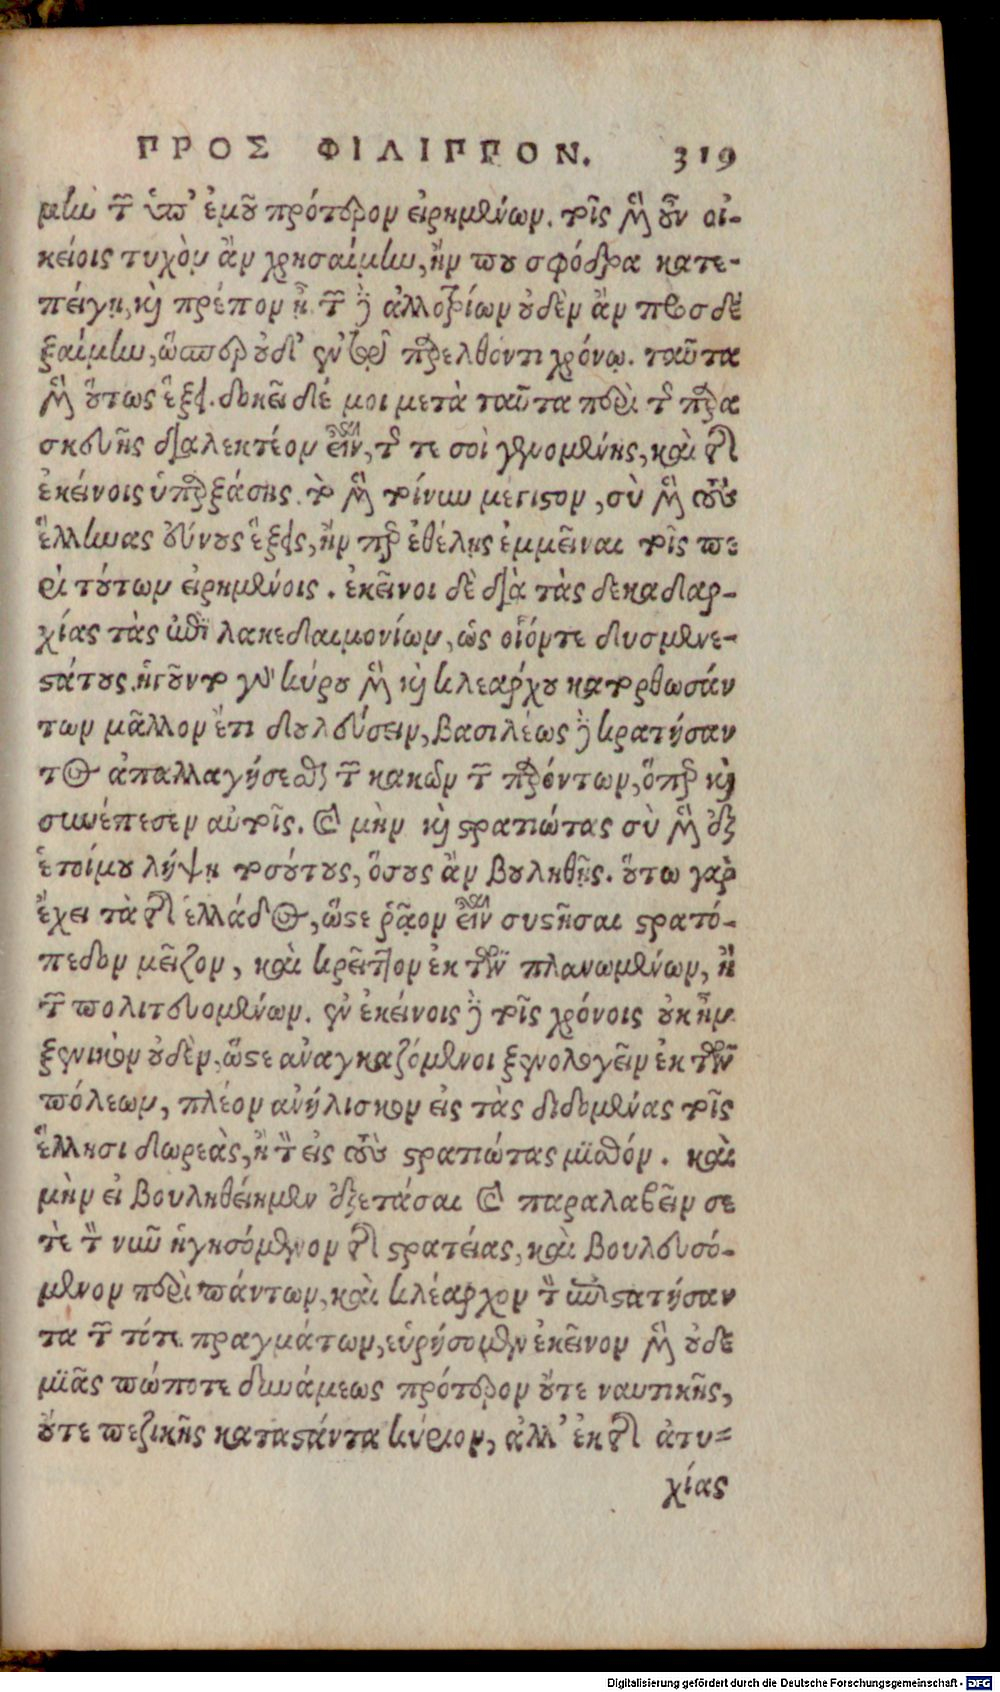 ΠΡΟΣ ΦΙΛΙΠΠΟΝ. 319
μην τῶν ὑπ' ἐμοῦ πρότερον εἰρημένων. τοῖς μὲν οὖν οἰ-
κείοις τυχὸν ἂν χρησαίμην, ἤν που σφόδρα κατε-
πείγῃ, καὶ πρέπον ᾖ. τῶν δὲ ἀλλοτρίων οὐδὲν ἂν προσδε
ξαίμην, ὥσπερ οὐδ' ἐν τῷ παρελθόντι χρόνῳ. ταῦτα
μὲν οὕτως ἔξει. δοκεῖ δέ μοι μετὰ ταῦτα περὶ τῆς παρα
σκευῆς διαλεκτέον εἶναι, τῆς τε σοὶ γενομένης, καὶ τῆς
ἐκείνοις ὑπαρξάσης. τὸ μὲν τοίνυν μέγιστον, σὺ μὲν τοὺς
ἕλληνας εὔνους ἕξεις, ἤν περ ἐθέλῃς ἐμμεῖναι τοῖς πε
ρὶ τούτων εἰρημένοις. ἐκεῖνοι δὲ διὰ τὰς δεκαδαρ-
χίας τὰς ἐπὶ λακεδαιμονίων, ὡς οἷόντε δυσμενε-
στάτους. ἡγοῦντο γὰρ κύρου μὲν καὶ κλεάρχου κατορθωσάν
των μᾶλλον ἔτι δουλεύσειν, βασιλέως δὲ κρατήσαν
τος ἀπαλλαγήσεσθαι τῶν κακῶν τῶν παρόντων, ὅπερ καὶ
συνέπεσεν αὐτοῖς. καὶ μὴν καὶ στρατιώτας σὺ μὲν ἐξ
ἑτοίμου λήψῃ τοσούτους, ὅσους ἂν βουληθῇς. οὕτω γὰρ
ἔχει τὰ τῆς ἑλλάδος, ὥστε ῥᾷον εἶναι συστῆσαι στρατό-
πεδον μεῖζον, καὶ κρεῖττον ἐκ τῶν πλανωμένων, ἢ
τῶν πολιτευομένων. ἐν ἐκείνοις δὲ τοῖς χρόνοις οὐκ ἦν
ξενικὸν οὐδὲν, ὥστε ἀναγκαζόμενοι ξενολογεῖν ἐκ τῶν
πόλεων, πλέον ἀνήλισκον εἰς τὰς διδομένας τοῖς
ἕλλησι δωρεὰς, ἢ τὸν εἰς τοὺς στρατιώτας μισθόν. καὶ
μὴν εἰ βουληθείημεν ἐξετάσαι καὶ παραλαβεῖν σε
τὲ τὸν νῦν ἡγησόμενον τῆς στρατείας, καὶ βουλευσό-
μενον περὶ πάντων, καὶ κλέαρχον τὸν ἐπιστατήσαν
τα τῶν τότε πραγμάτων, εὑρήσομεν ἐκεῖνον μὲν οὐδε
μιᾶς πώποτε δυνάμεως πρότερον οὔτε ναυτικῆς,
οὔτε πεζικῆς καταστάντα κύριον, ἀλλ' ἐκ τῆς ἀτυ-
χίας
Digitalisierung gefördert durch die Deutsche Forschungsgemeinschaft - DFG